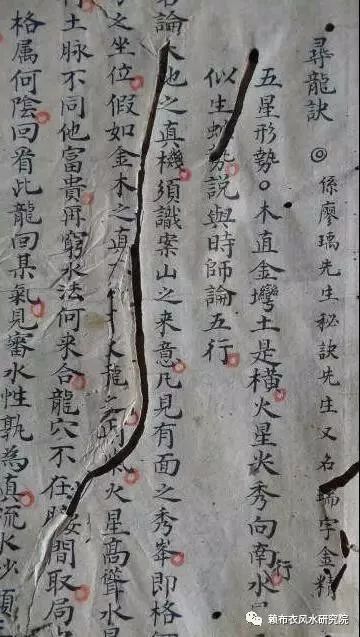 尋龍訣 ◎ 係廖瑀先生秘訣先生又名瑞字金精
五星形勢。木直金灣土是橫火星尖秀向南水行
似生蛇 說與時師論五行
若論木也之真機須識案山之来意凡見有面之秀峯即格
之坐位假如金木之真 龍之 火星高聳水星
土脉不同他富貴再窮水法何来合龍穴不在 間取局
格属何陰回看此龍回某氣見審水性孰為真流水沙
赖布衣风水研究院